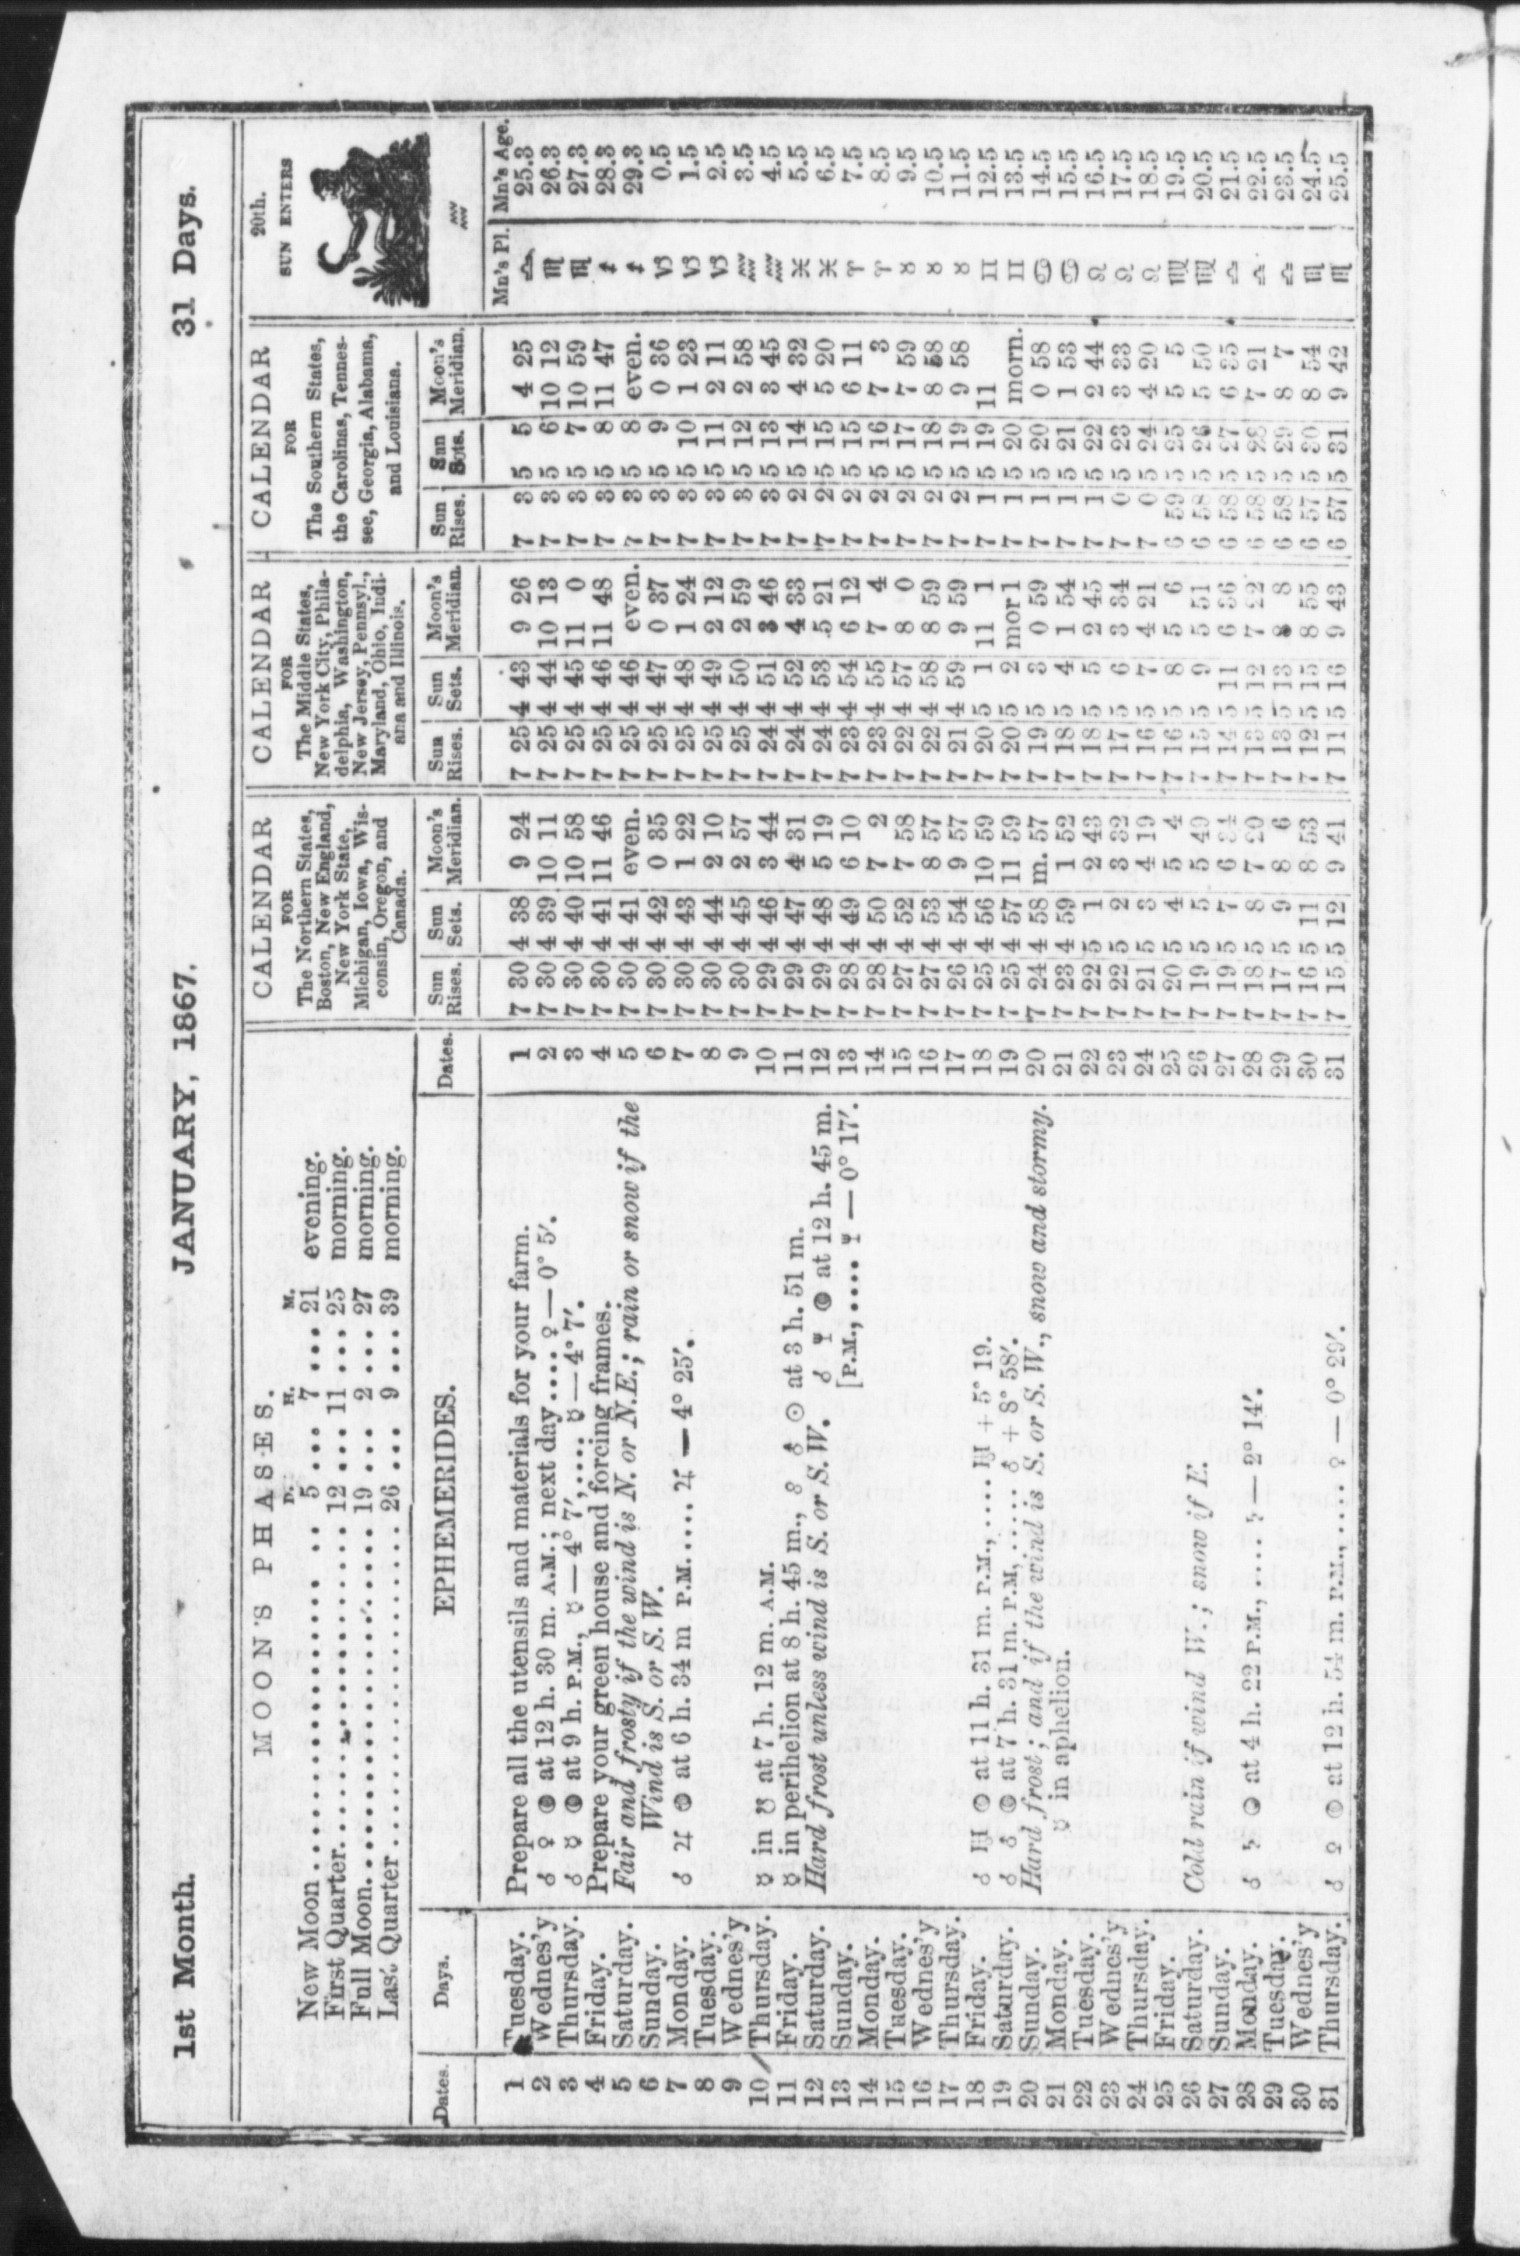 1st Month. JANUARY, 1867. 31 Days.
MOON'S PHASES.
D. H. M.
New Moon 5 ... 7 ... 21 evening.
First Quarter 12 ... 11 ... 25 morning.
Full Moon 19 ... 2 ... 27 morning.
Last Quarter 26 ... 9 ... 39 morning.
CALENDAR
FOR
The Northern States,
Boston, New England,
New York State,
Michigan, Iowa, Wis-
consin, Oregon, and
Canada.
CALENDAR
FOR
The Middle States,
New York City, Phila-
delphia, Washington,
New Jersey, Pennsyl.,
Maryland, Ohio, Indi-
ana and Illinois.
CALENDAR
FOR
The Southern States,
the Carolinas, Tennes-
see, Georgia, Alabama,
and Louisiana.
20th.
SUN ENTERS
♒
Dates. Days. EPHEMERIDES. Dates. Sun Rises. Sun Sets. Moon's Meridian. Sun Rises. Sun Sets. Moon's Meridian. Sun Rises. Sun Sets. Moon's Meridian. Mn's Pl. Mn's Age.
1 Tuesday. Prepare all the utensils and materials for your farm. 1 7 30 4 38 9 24 7 25 4 43 9 26 7 3 5 5 4 25 ♎ 25.3
2 Wednes'y ☌ ♀ ☾ at 12 h. 30 m. A.M.; next day.... ♀ — 0° 5′. 2 7 30 4 39 10 11 7 25 4 44 10 13 7 3 5 6 10 12 ♏ 26.3
3 Thursday. ☌ ☿ ☾ at 9 h. P.M., ☿ — 4° 7′,.... ☿ — 4° 7′. 3 7 30 4 40 10 58 7 25 4 45 11 0 7 3 5 7 10 59 ♏ 27.3
4 Friday. Prepare your green house and forcing frames. 4 7 30 4 41 11 46 7 25 4 46 11 48 7 3 5 8 11 47 ♐ 28.3
5 Saturday. Fair and frosty if the wind is N. or N.E.; rain or snow if the 5 7 30 4 41 even. 7 25 4 46 even. 7 3 5 8 even. ♐ 29.3
6 Sunday. Wind is S. or S.W. 6 7 30 4 42 0 35 7 25 4 47 0 37 7 3 5 9 0 36 ♑ 0.5
7 Monday. ☌ ♃ ☾ at 6 h. 34 m P.M..... ♃ — 4° 25′. 7 7 30 4 43 1 22 7 25 4 48 1 24 7 3 5 10 1 23 ♑ 1.5
8 Tuesday. 8 7 30 4 44 2 10 7 25 4 49 2 12 7 3 5 11 2 11 ♑ 2.5
9 Wednes'y 9 7 30 4 45 2 57 7 25 4 50 2 59 7 3 5 12 2 58 ♒ 3.5
10 Thursday. ☿ in ☋ at 7 h. 12 m. A.M. 10 7 29 4 46 3 44 7 24 4 51 3 46 7 3 5 13 3 45 ♒ 4.5
11 Friday. ☿ in perihelion at 8 h. 45 m., ☍ ♂ ☉ at 3 h. 51 m. 11 7 29 4 47 4 31 7 24 4 52 4 33 7 2 5 14 4 32 ♓ 5.5
12 Saturday. Hard frost unless wind is S. or S.W. ☌ ♆ ☾ at 12 h. 45 m. 12 7 29 4 48 5 19 7 24 4 53 5 21 7 2 5 15 5 20 ♓ 6.5
13 Sunday. [P.M.,.... ♆ — 0° 17′. 13 7 28 4 49 6 10 7 23 4 54 6 12 7 2 5 15 6 11 ♈ 7.5
14 Monday. 14 7 28 4 50 7 2 7 23 4 55 7 4 7 2 5 16 7 3 ♈ 8.5
15 Tuesday. 15 7 27 4 52 7 58 7 22 4 57 8 0 7 2 5 17 7 59 ♉ 9.5
16 Wednes'y 16 7 27 4 53 8 57 7 22 4 58 8 59 7 2 5 18 8 58 ♉ 10.5
17 Thursday. 17 7 26 4 54 9 57 7 21 4 59 9 59 7 2 5 19 9 58 ♉ 11.5
18 Friday. ☌ ♅ ☾ at 11 h. 31 m. P.M.,..... ♅ + 5° 19. 18 7 25 4 56 10 59 7 20 5 1 11 1 7 1 5 19 11 ♊ 12.5
19 Saturday. ☌ ♂ ☾ at 7 h. 31 m. P.M,..... ♂ + 8° 58′. 19 7 25 4 57 11 59 7 20 5 2 mor 1 7 1 5 20 morn. ♊ 13.5
20 Sunday. Hard frost; and if the wind is S. or S. W., snow and stormy. 20 7 24 4 58 m. 57 7 19 5 3 0 59 7 1 5 20 0 58 ♋ 14.5
21 Monday. ☿ in aphelion. 21 7 23 4 59 1 52 7 18 5 4 1 54 7 1 5 21 1 53 ♋ 15.5
22 Tuesday. 22 7 22 5 1 2 43 7 18 5 5 2 45 7 1 5 22 2 44 ♌ 16.5
23 Wednes'y 23 7 22 5 2 3 32 7 17 5 6 3 34 7 0 5 23 3 33 ♌ 17.5
24 Thursday. 24 7 21 5 3 4 19 7 16 5 7 4 21 7 0 5 24 4 20 ♌ 18.5
25 Friday. 25 7 20 5 4 5 4 7 16 5 8 5 6 6 59 5 25 5 5 ♍ 19.5
26 Saturday. Cold rain if wind W.; snow if E. 26 7 19 5 5 5 49 7 15 5 9 5 51 6 58 5 26 5 50 ♍ 20.5
27 Sunday. 27 7 19 5 7 6 34 7 14 5 11 6 36 6 58 5 27 6 35 ♎ 21.5
28 Monday. ☌ ♄ ☾ at 4 h. 22 P.M.,.... ♄ — 2° 14′. 28 7 18 5 8 7 20 7 13 5 12 7 22 6 58 5 28 7 21 ♎ 22.5
29 Tuesday. 29 7 17 5 9 8 6 7 13 5 13 8 8 6 58 5 29 8 7 ♎ 23.5
30 Wednes'y 30 7 16 5 11 8 53 7 12 5 15 8 55 6 57 5 30 8 54 ♏ 24.5
31 Thursday. ☌ ♀ ☾ at 12 h. 54 m. P.M.,.... ♀ — 0° 29′. 31 7 15 5 12 9 41 7 11 5 16 9 43 6 57 5 31 9 42 ♏ 25.5